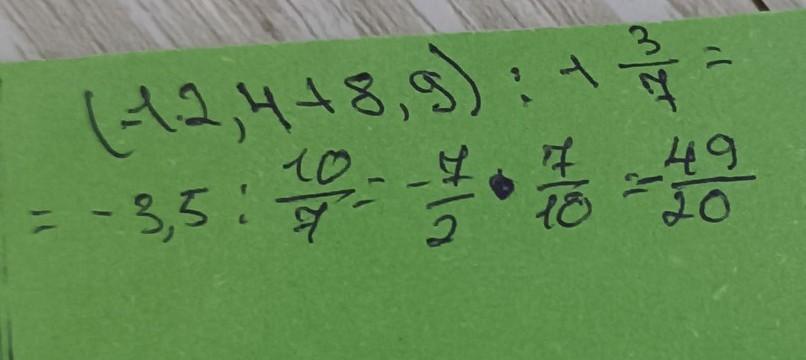 (-12,4+8,9) : 1 3/7 =
= -3,5 : 10/7 = -7/2 · 7/10 = -49/20